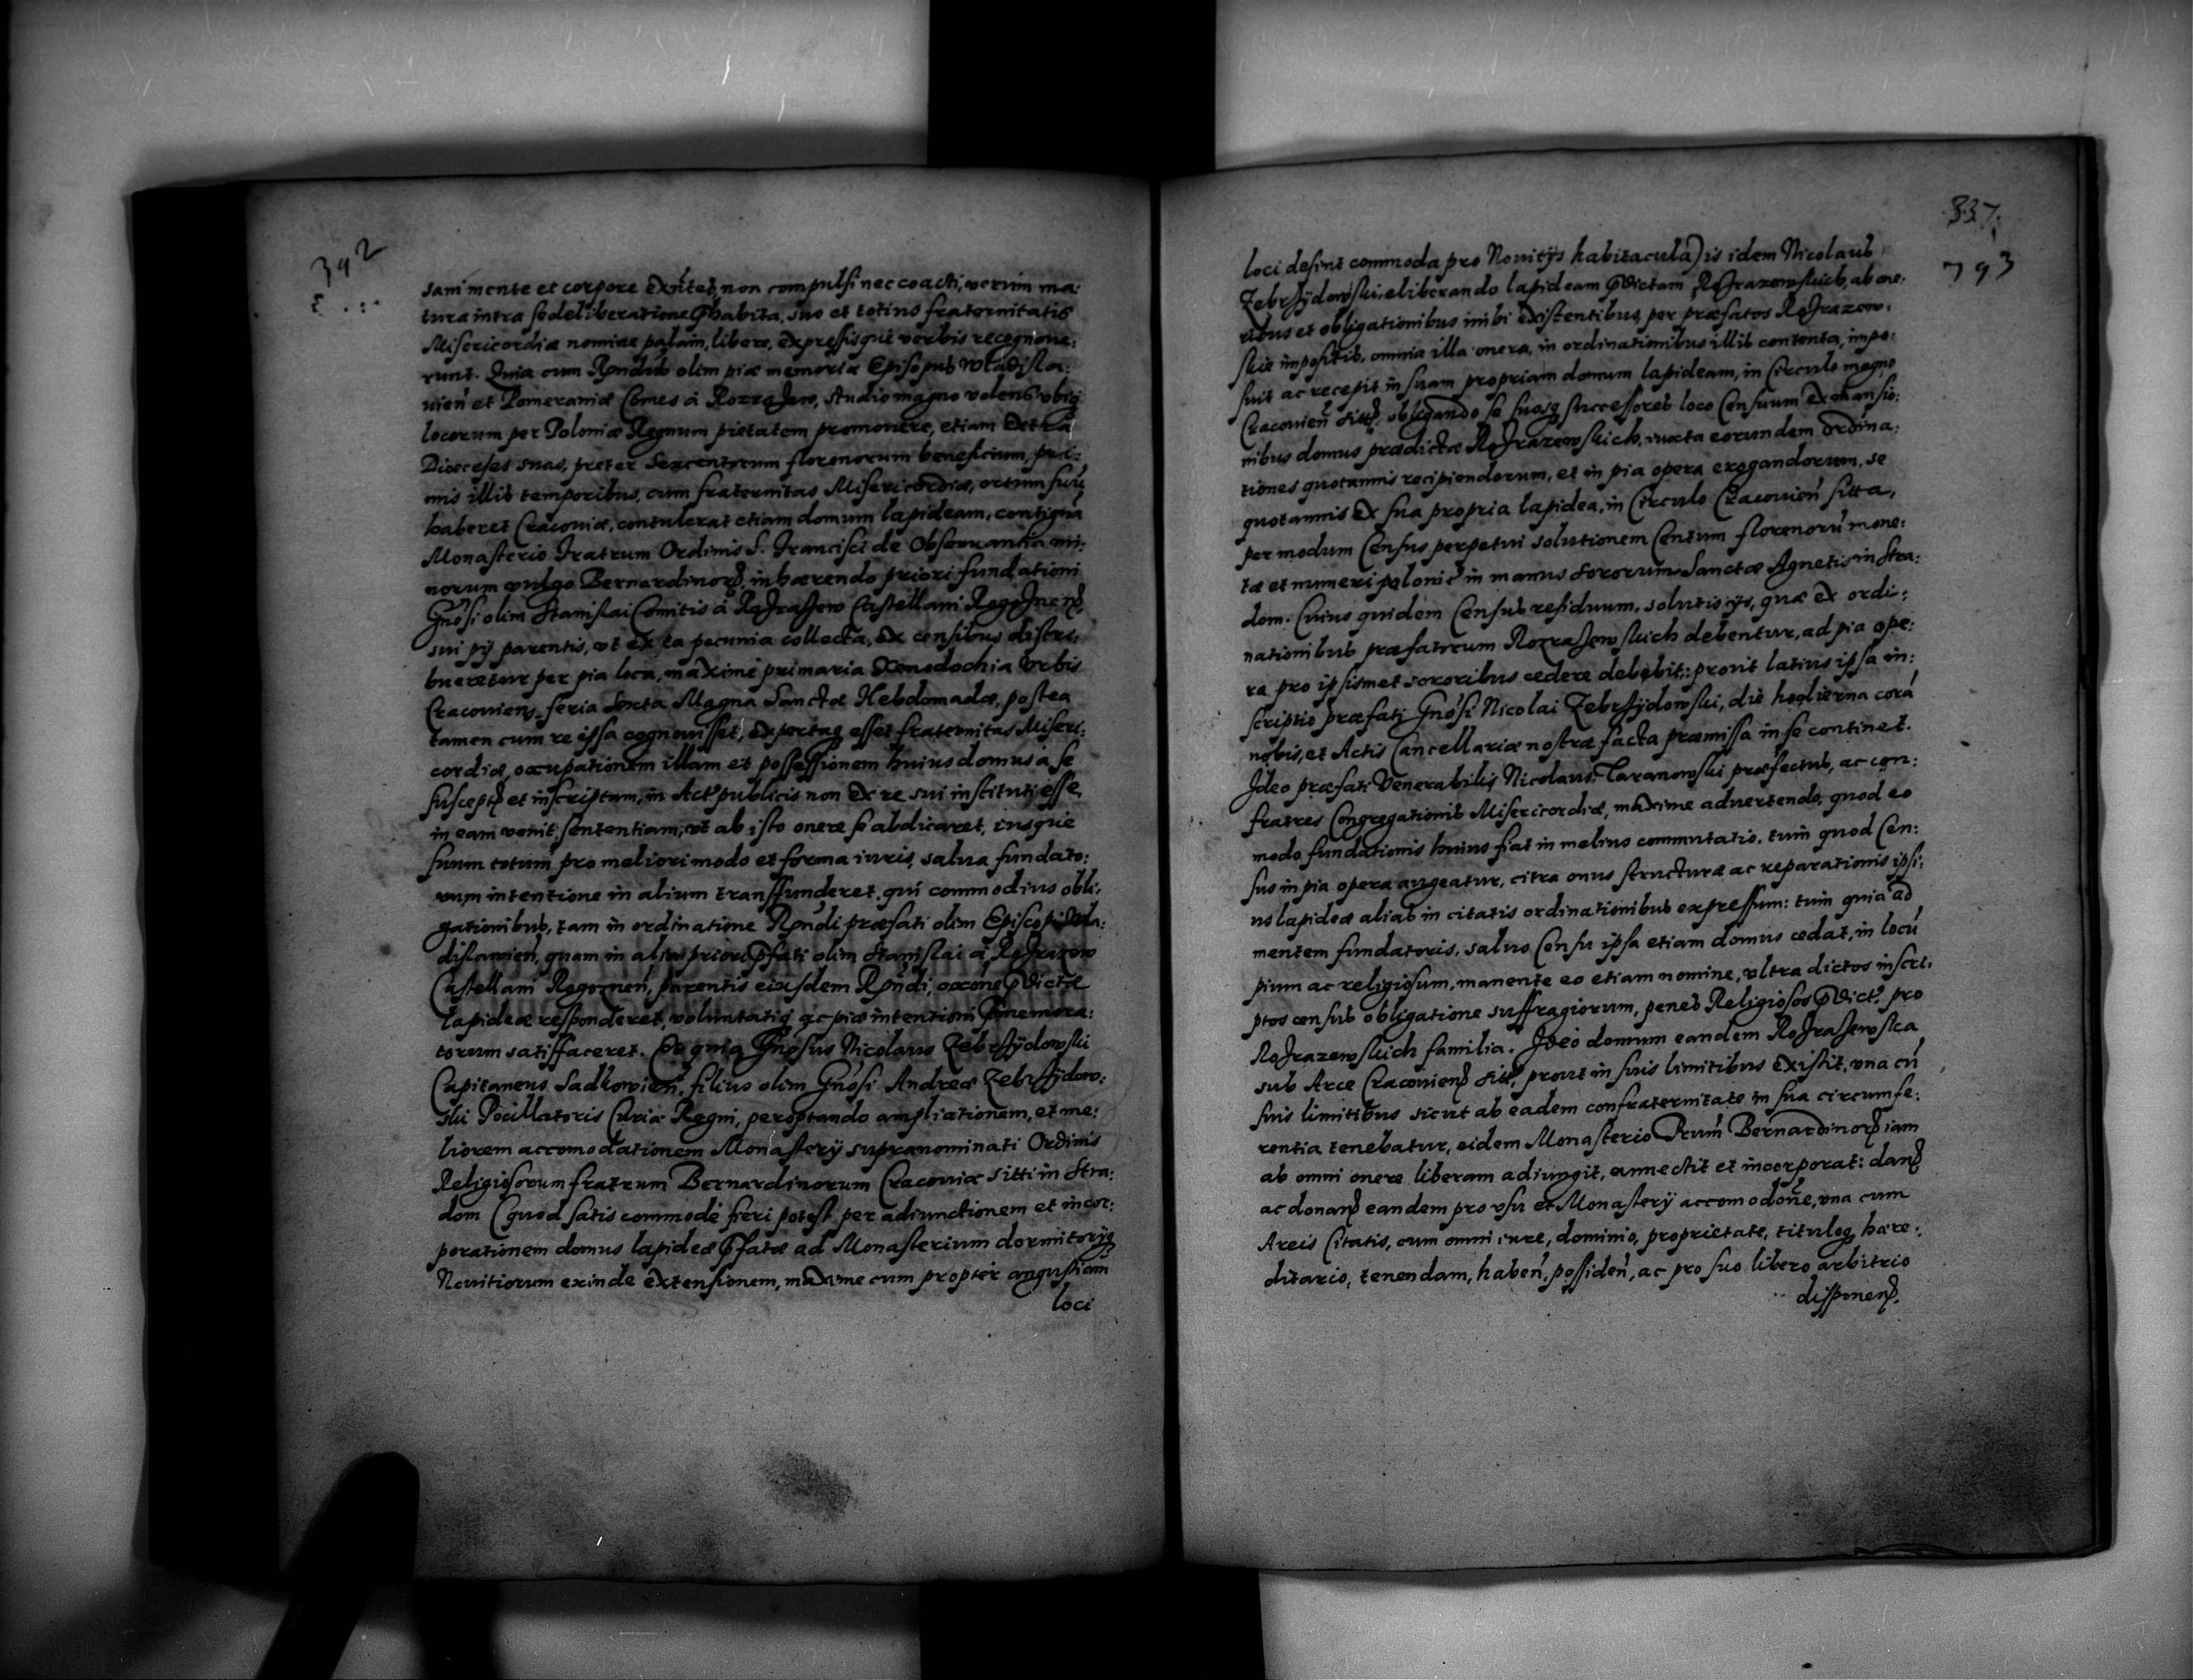 392
sani mente et corpore exñtes, non compulsi nec coacti, verum ma:
tura intra se deliberatione phabita, suo et totius fraternitatis
Misericordiæ nomine palam, libere, expressisque verbis recognoue:
runt. Quia cum Rṇdus olim piæ memoriæ Episcopus Wladisla:
uień et Pomeraniæ Comes à Rozrażew, studio magno volens vbiq
locorum per Poloniæ Regnum pietatem promouere, etiam extra
Dioeceses suas, preter sexcentorum florenorum beneficium, pri:
mis illis temporibus, cum fraternitas Misericordiæ, ortum suũ
haberet Cracouiæ, contulerat etiam domum lapideam, contiguã
Monasterio Fratrum Ordinis S. Francisci de Obseruantia mi:
norum vulgo Bernardinorꝝ, inhærendo priori fundationi
Gnosi olim Stanislai Comitis à Rozrażew Castellani Rogoznenꝭ,
sui pij parentis, vt ex ea pecunia collecta, ex censibus distri:
bueretur per pia loca, maxime primaria Xenodochia Vrbis
Cracouienꝭ feria sexta Magna Sanctæ Hebdomadæ, postea
tamen cum re ipsa cognouisset, expertaq esset fraternitas Miseri:
cordiæ, occupationem illam et possessionem huius domus à se
suscepꝭ et inscriptum, in Actꝭ publicis non ex re sui instituti esse,
in eam venit sententiam, vt ab isto onere se abdicaret, iusque
suum totum pro meliori modo et forma iuris, salua fundato:
rum intentione in alium transfunderet, qui commodius obli:
gationibus, tam in ordinatione Rṇdi præfati olim Episcopi Wla:
dislauień, quam in alia priori pfati olim Stanislai à Rozrażew
Castellani Rogoznen, parentis eiusdem Rṇdi, oc̃one pdictæ
lapideæ responderet, voluntatiq ac piæ intentioni pmemora:
torum satisfaceret. Eo quia Gnosus Nicolaus Zebrzydowski
Capitaneus Sadkowień, filius olim Gnosi Andreæ Zebrzydow:
ski Pocillatoris Curiæ Regni, peroptando ampliationem, et me:
liorem accomodationem Monasterij supranominati Ordinis
Religiosorum fratrum Bernardinorum Cracouiæ sitti in Stra:
dom (quod satis commodè fieri potest per adiunctionem et incor:
porationem domus lapideæ pfatæ ad Monasterium dormitorijq
Nouitiorum exinde extensionem, maxime cum propter angustiam
loci
337.
793
loci desint commoda pro Nouitijs habitacula) is idem Nicolaus
Zebrzydowski, eliberando lapideam pdictam Rozrazewskich, ab one:
ribus et obligationibus inibi existentibus, per præfatos Rozrazew:
skie impositis, omnia illa onera, in ordinationibus illis contenta, impo:
suit ac recepit in suam propriam domum lapideam, in Circulo magno
Cracouień sittꝭ, obligando se suosq successores loco Censuum ex mansio:
nibus domus prædictæ Rozrazewskich, iuxta eorundem ordina:
tiones quotannis recipiendorum, et in pia opera erogandorum, se
quotannis ex sua propria lapidea, in Circulo Cracouień sitta,
per modum Census perpetui solutionem Centum florenorũ mone:
tæ et numeri polonicꝭ in manus sororum Sanctæ Agnetis in Stra:
dom. Cuius quidem Census residuum, solutis ijs, quæ ex ordi:
nationibus præfatorum Rozrażewskich debentur, ad pia ope:
ra pro ipsismet sororibus cedere debebit: prout latius ipsa in:
scriptio præfati Gnosi Nicolai Zebrzydowski, die hodierna corã
nobis, et Actis Cancellariæ nostræ facta præmissa in se continet.
Ideo præfati Venerabilis Nicolaus Taranowski præfectus, ac con:
fratres Congregationis Misericordiæ, maxime aduertendo, quod eo
modo fundationis huius fiat in melius commutatio, tum quod Cen:
sus in pia opera augeatur, citra onus structuræ ac reparationis ipsi:
us lapideæ alias in citatis ordinationibus expressum: tum quia ad
mentem fundatoris, saluo Censu ipsa etiam domus cedat, in locũ
pium ac religiosum, manente eo etiam nomine, vltra dictos inscri:
ptos census obligatione suffragiorum, penes Religiosos pdictꝭ, pro
Rozrazewskich familia. Ideò domum eandem Rozrażewska
sub Arce Cracouienꝭ sitꝭ, prout in suis limitibus existit, vna cũ
suis limitibus sicut ab eadem confraternitate in sua circumfe:
rentia tenebatur, eidem Monasterio Frum̃ Bernardinorꝝ iam
ab omni onere liberam adiungit, annectit et incorporat: danꝭ
ac donanꝭ eandem pro vsu et Monasterij accomodõne, vna cum
Areis Citatis, cum omni iure, dominio, proprietate, tituloq hære:
ditario, tenendam, habeń, possideń, ac pro suo libero arbitrio
disponenꝭ.